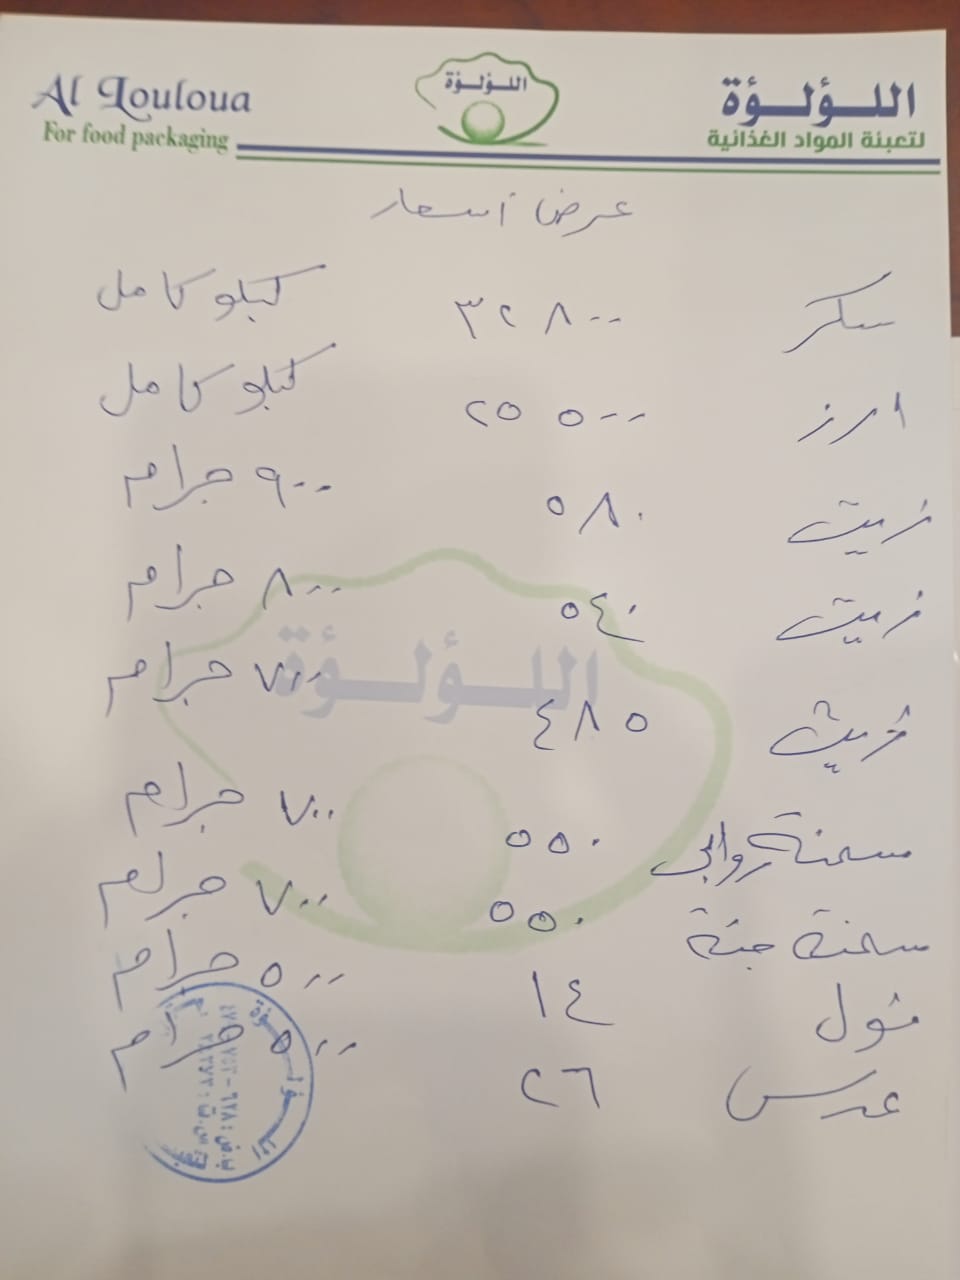 Al Louloua
For food packaging
اللؤلؤة
اللؤلؤة
لتعبئة المواد الغذائية
عرض أسعار
سكر ٣٢٨٠٠ كيلو كامل
ارز ٢٥٥٠٠ كيلو كامل
زيت ٥٨٠ ٩٠٠ جرام
زيت ٥٤٠ ٨٠٠ جرام
زيت ٤٨٥ ٧٠٠ جرام
سمنة روابى ٥٥٠ ٧٠٠ جرام
سمنة جنة ٥٥٠ ٧٠٠ جرام
فول ١٤ ٥٠٠ جرام
عدس ٢٦ ٥٠٠ جرام
اللؤلؤة
اللؤلؤة